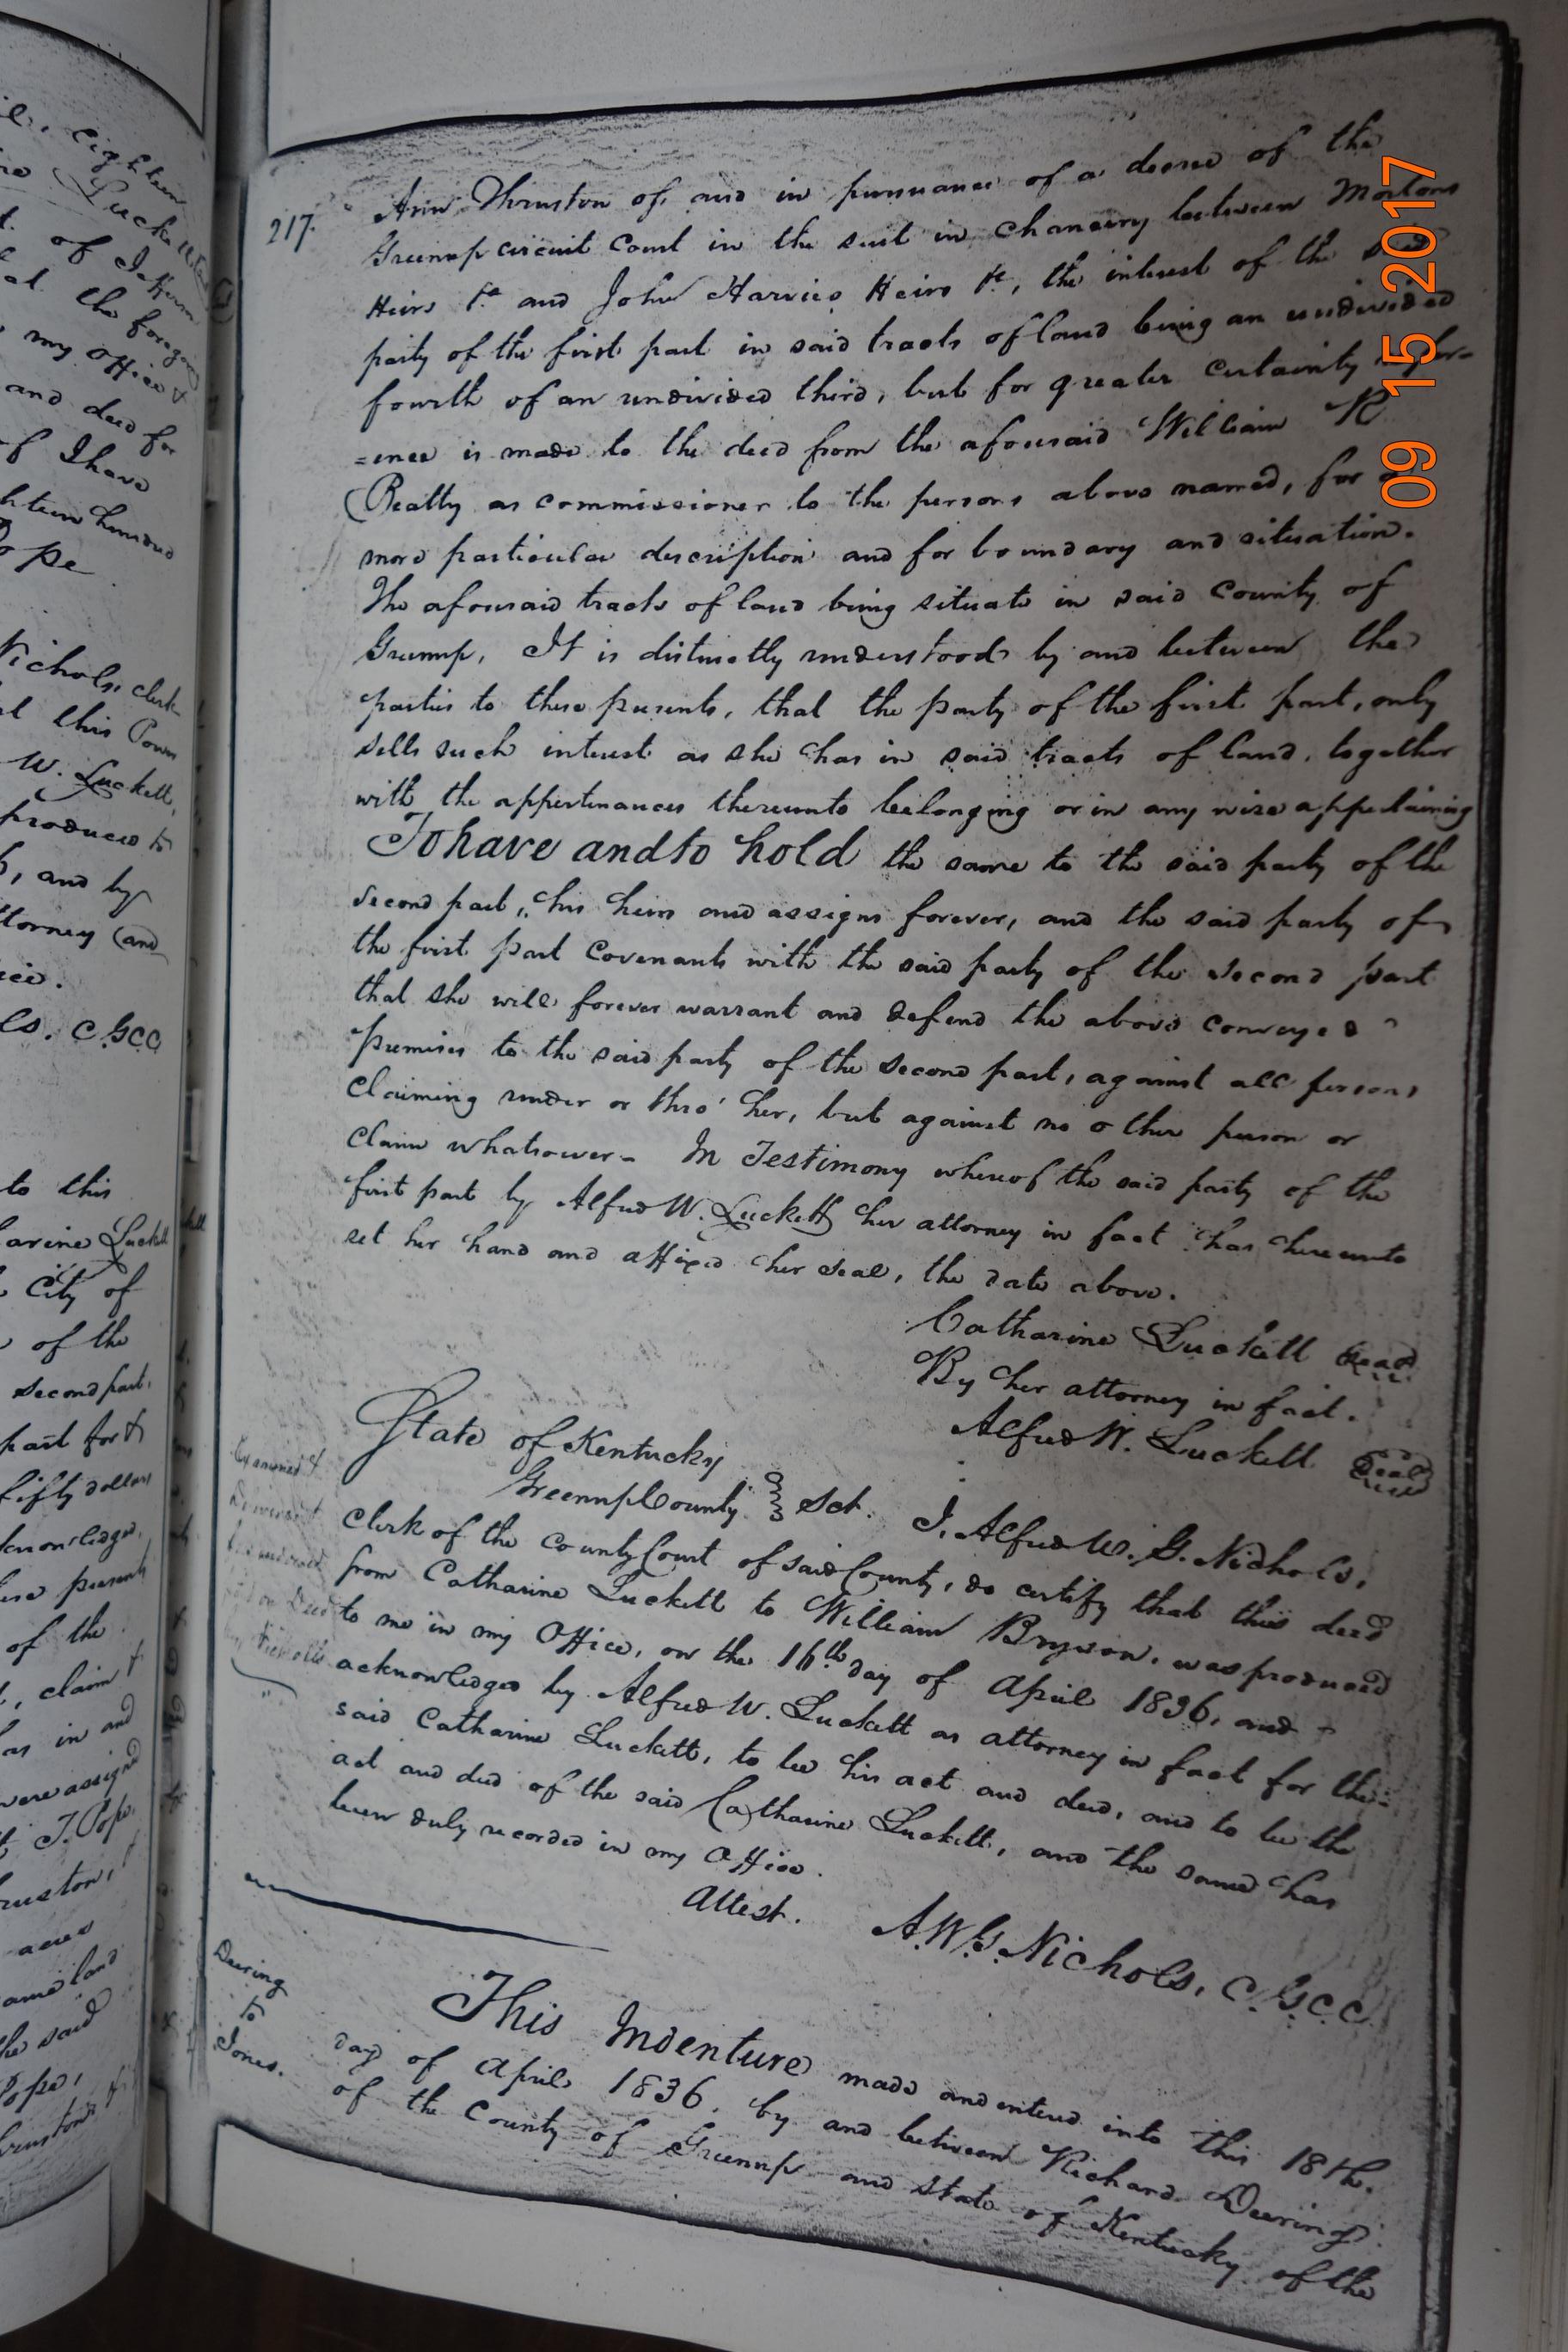 il, Eighteen
Luckett
of Jefferson
the foregoing
my office &
and deed for
of I have
hteen hundred
Pope
Nichols, clerk
this Power
W. Luckett,
produced to
, and by
ttorney (and
C.G.C.C
to this
arine Luckett
City of
of the
second part,
part for &
fifty dollars
knowledged,
presents
of the
, claim &
as in and
were assigned
J. Pope,
ruston,
acres
land
he said
Pope,
217.
Ann Thruston of, and in pursuance of a decree of the
Greenup circuit Court in the suit in chancery between Mortons
Heirs &c and John Harvies Heirs &c, the interest of the said
party of the first part in said tracts of land being an undivided
fourth of an undivided third, but for greater certainty refer-
=ence is made to the deed from the aforesaid William R
Beatty as commissioner to the persons above named, for a
more particular description and for boundary and situation.
The aforesaid tracts of land being situate in said County of
Greenup, It is distinctly understood by and between the
parties to these presents, that the party of the first part, only
sells such interest as she has in said tracts of land, together
with the appertinances thereunto belonging or in any wise appertaining
To have and to hold the same to the said party of the
second part, his heirs and assigns forever, and the said party of
the first part Covenants with the said party of the second part
that she will forever warrant and defend the above conveyed
premises to the said party of the second part, against all persons
claiming under or thro' her, but against no other person or
claim whatsoever- In Testimony whereof the said party of the
first part by Alfred W. Luckett her attorney in fact has hereunto
set her hand and affixed her seal, the date above.
Catharine Luckett Seal
By her attorney in fact.
Alfred W. Luckett Seal
State of Kentucky
Greenup County } Sct. I, Alfred W. G. Nichols,
Clerk of the County Court of said County, do certify that this deed
from Catharine Luckett to William Bryson, was produced
to me in my Office, on the 16th day of April 1836, and
acknowledged by Alfred W. Luckett as attorney in fact for the
said Catharine Luckett, to be his act and deed, and to be the
act and deed of the said Catharine Luckett, and the same has
been duly recorded in my Office.
Attest. A.W.G. Nichols, C.G.C.C.
Examined &
Delivered
Deering
to
Jones.
This Indenture made and entered into this 18th.
day of April 1836, by and between Richard Deering
of the County of Greenup and State of Kentucky of the
09 15 2017